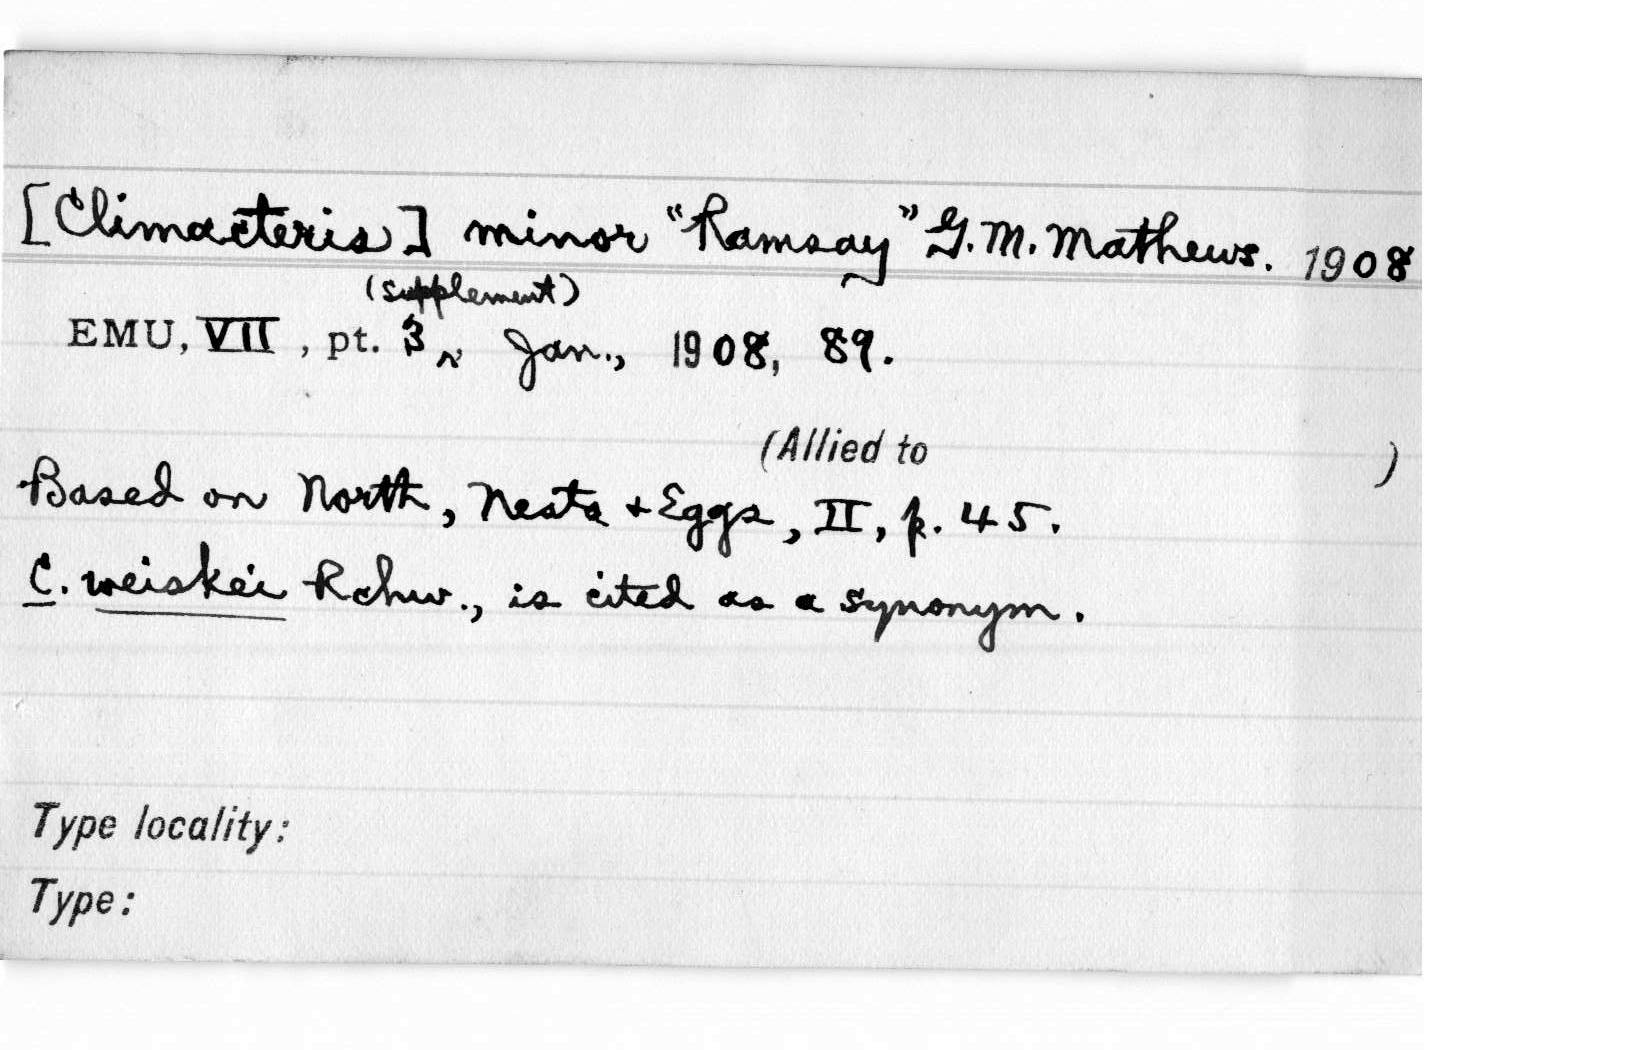 [Climacteris] minor "Ramsay" G.M. Mathews. 1908
(supplement)
EMU, VII, pt. 3, Jan., 1908, 89.
(Allied to )
Based on North, Nests + Eggs, II, p. 45.
C. weiskei Rchw., is cited as a synonym.
Type locality:
Type: